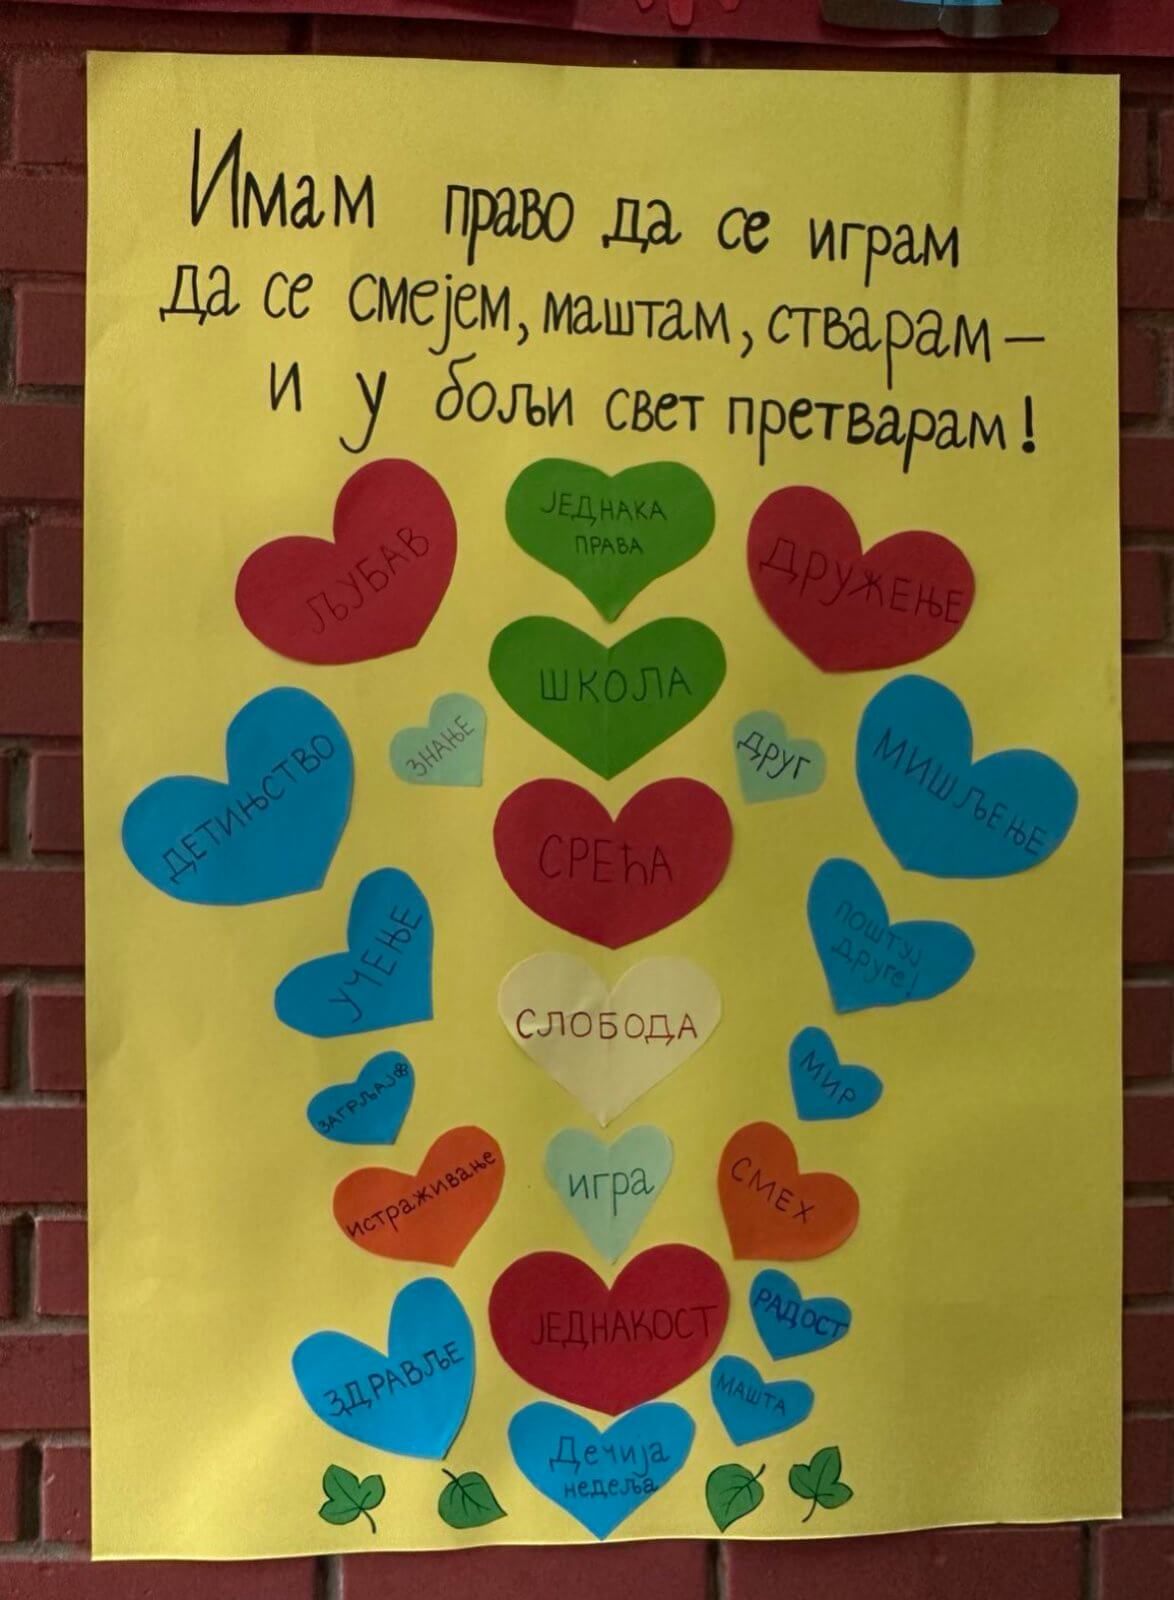 Имам право да се играм
да се смејем, маштам, стварам –
и у бољи свет претварам!
ЉУБАВ
ЈЕДНАКА
ПРАВА
ДРУЖЕЊЕ
ШКОЛА
ДЕТИЊСТВО
ЗНАЊЕ
ДРУГ
МИШЉЕЊЕ
СРЕЋА
УЧЕЊЕ
ПОШТУЈ
Друге!
СЛОБОДА
ЗАГРЉАЈ
МИР
истраживање
игра
СМЕХ
ЗДРАВЉЕ
ЈЕДНАКОСТ
РАДОСТ
МАШТА
Дечија
недеља